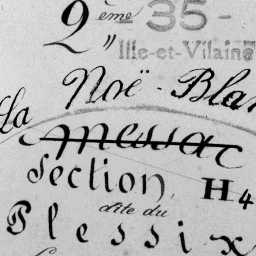 2ème - 35 -
" Ille-et-Vilaine
La Noë-Blan
Messac
Section, H4
dite du
Plessix